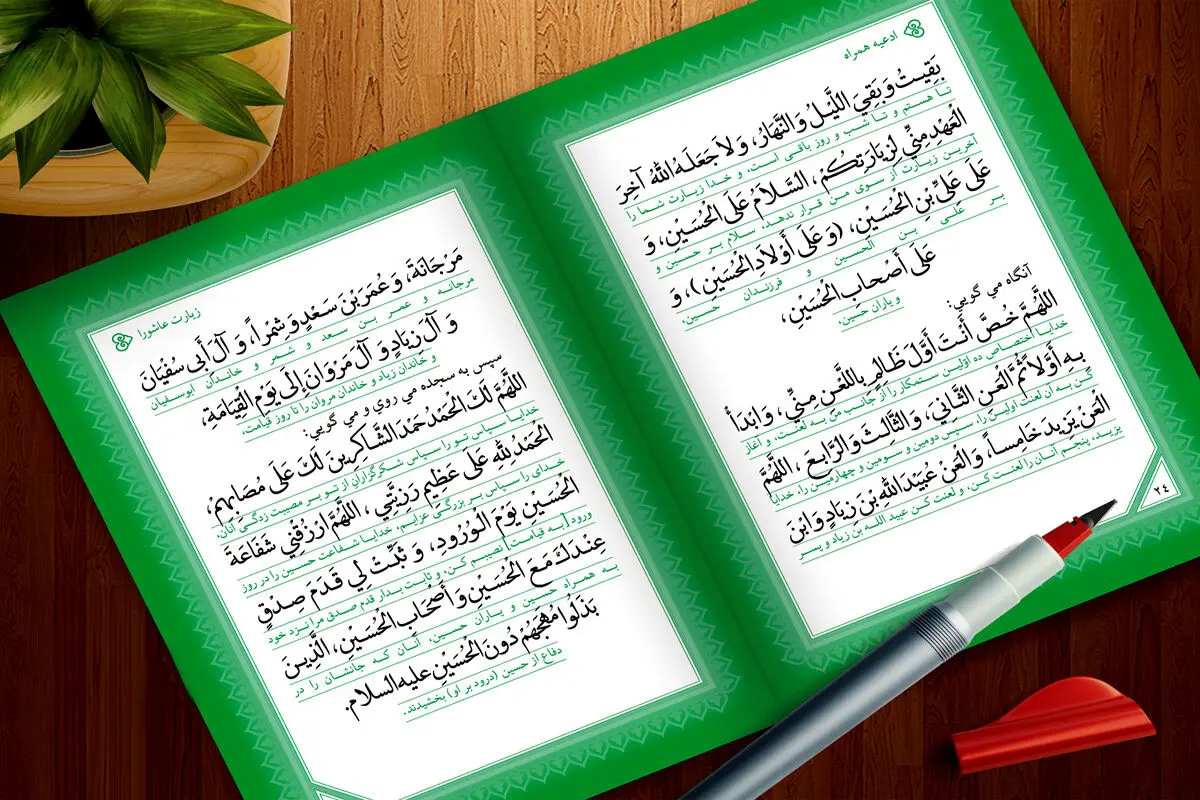 ادعیه همراه
بَقِيتُ وَ بَقِيَ اللَّيْلُ وَ النَّهَارُ، وَ لاَ جَعَلَهُ اللهُ آخِرَ
تا هستم و تا شب و روز باقی است، و خدا زیارت شما را
الْعَهْدِ مِنِّي لِزِيَارَتِكُمْ، السَّلاَمُ عَلَى الْحُسَيْنِ، وَ
آخرین زیارت از سوی من قرار ندهد، سلام بر حسین و
عَلَى عَلِيِّ بْنِ الْحُسَيْنِ، (وَ عَلَى أَوْلاَدِ الْحُسَيْنِ)، وَ
بر علی بن الحسین و فرزندان حسین،
عَلَى أَصْحَابِ الْحُسَيْنِ،
و یاران حسین.
آنگاه می گویی:
اللَّهُمَّ خُصَّ أَنْتَ أَوَّلَ ظَالِمٍ بِاللَّعْنِ مِنِّي، وَ ابْدَأْ
خدایا اختصاص ده اوّلین ستمکار را از جانب من به لعنت، و آغاز
بِهِ أَوَّلاً ثُمَّ الْعَنِ الثَّانِيَ، وَ الثَّالِثَ وَ الرَّابِعَ، اللَّهُمَّ
کن به آن لعنت اولین را، سپس دومین و سومین و چهارمین را، خدایا
الْعَنْ يَزِيدَ خَامِساً، وَ الْعَنْ عُبَيْدَ اللهِ بْنَ زِيَادٍ وَ ابْنَ
یزید، پنجم آنان را لعنت کن، و لعنت کن عبید الله بن زیاد و پسر
٢٤
زیارت عاشورا
مَرْجَانَةَ، وَ عُمَرَ بْنَ سَعْدٍ وَ شِمْراً، وَ آلَ أَبِي سُفْيَانَ
مرجانه و عمر بن سعد و شمر و خاندان ابوسفیان
وَ آلَ زِيَادٍ وَ آلَ مَرْوَانَ إِلَى يَوْمِ الْقِيَامَةِ،
و خاندان زیاد و خاندان مروان را تا روز قیامت.
سپس به سجده می روی و می گویی:
اللَّهُمَّ لَكَ الْحَمْدُ حَمْدَ الشَّاكِرِينَ لَكَ عَلَى مُصَابِهِمْ،
خدایا سپاس تو را سپاس شکرگزاران از تو بر مصیبت زدگی آنان،
الْحَمْدُ لِلَّهِ عَلَى عَظِيمِ رَزِيَّتِي، اللَّهُمَّ ارْزُقْنِي شَفَاعَةَ
خدای را سپاس بر بزرگی عزایم، خدایا شفاعت حسین را در روز
الْحُسَيْنِ يَوْمَ الْوُرُودِ، وَ ثَبِّتْ لِي قَدَمَ صِدْقٍ
ورود [به قیامت] نصیبم کن، و ثابت بدار قدم صدق مرا نزد خود
عِنْدَكَ مَعَ الْحُسَيْنِ وَ أَصْحَابِ الْحُسَيْنِ، الَّذِينَ
به همراه حسین و یاران حسین، آنان که جانشان را در
بَذَلُوا مُهَجَهُمْ دُونَ الْحُسَيْنِ عليه السلام.
دفاع از حسین (درود بر او) بخشیدند.